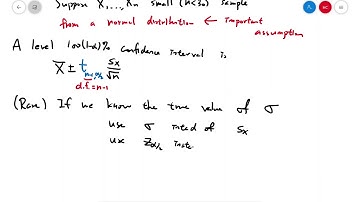 Suppose X1,...,Xn small (n<30) sample
from a normal distribution ← important
assumption
A level 100(1-α)% confidence interval is
X̄ ± t n-1, α/2 Sx/√n
d.f = n-1
(Rem) If we know the true value of σ
use σ insted of Sx
use Zα/2 inste